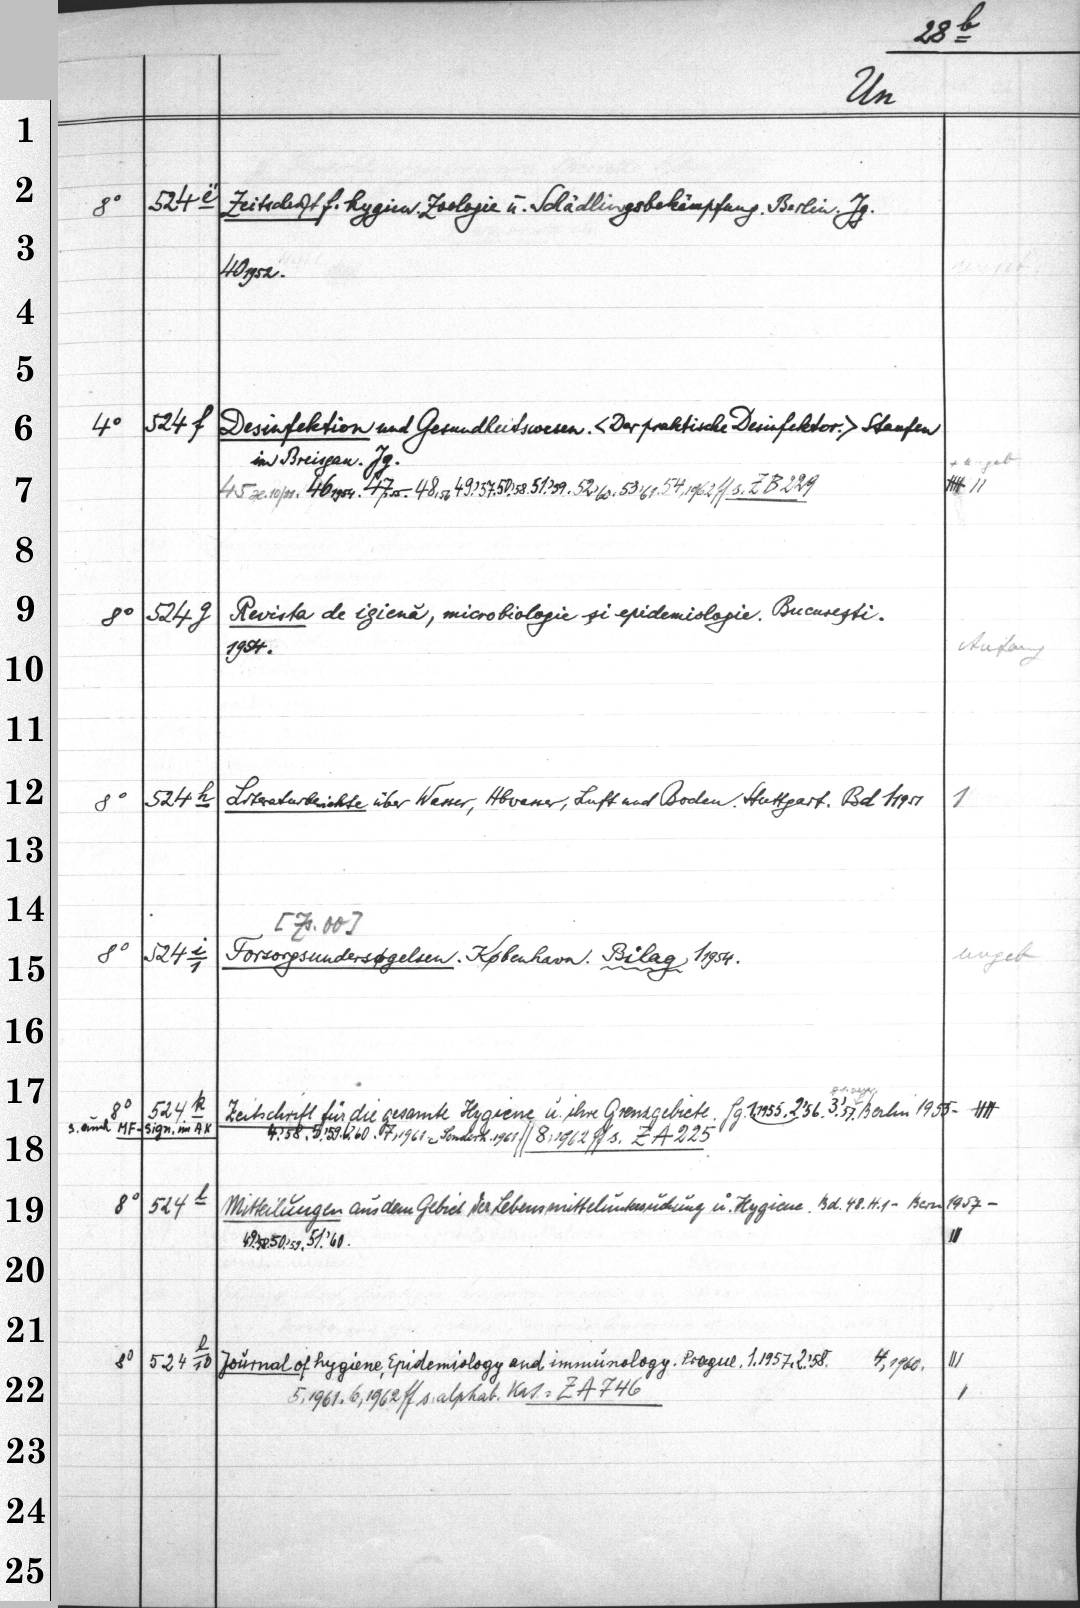 28 b
Un
1
2
8° 524 e Zeitschrift f. hygien. Zoologie u. Schädlingsbekämpfung. Berlin. Jg.
3
40 1952.
4
5
6
4° 524 f Desinfektion und Gesundheitswesen. <Der praktische Desinfektor.> Staufen
im Breisgau. Jg.
7
45 46 1954. 47, 55. 48, 56 49.'57. 50.'58. 51.'59. 52.'60. 53.'61. 54, 1962 ff s. ZB 229
8
9
8° 524 g Revista de igienă, microbiologie și epidemiologie. București.
1954.
Anfang
10
11
12
8° 524 h Literaturberichte über Wasser, Abwasser, Luft und Boden. Stuttgart. Bd 1 1951 1
13
14
[Zs. 00]
15
8° 524 i/1 Forsorgsundersøgelsen. København. Bilag, 1 1954. ungeb
16
17
8° 524 k Zeitschrift für die gesamte Hygiene u. ihre Grenzgebiete. Jg. 1, 1955. 2.'56. 3.'57. Berlin 1955-
s. auch MF-Sign. im AK 4.'58. 5.'59. 6.'60. 7, 1961. Sonderh. 1961 // 8, 1962 ff s. ZA 225
18
19
8° 524 l Mitteilungen aus dem Gebiet der Lebensmitteluntersuchung u. Hygiene. Bd. 48. H. 1 - Bern 1957 -
49.'58. 50.'59. 51.'60. III
20
21
8° 524 l/10 Journal of hygiene, Epidemiology and immunology. Prague. 1. 1957. 2.'58. 4, 1960. III
22
5, 1961. 6, 1962 ff s. alphab. Kat. = ZA 746 I
23
24
25